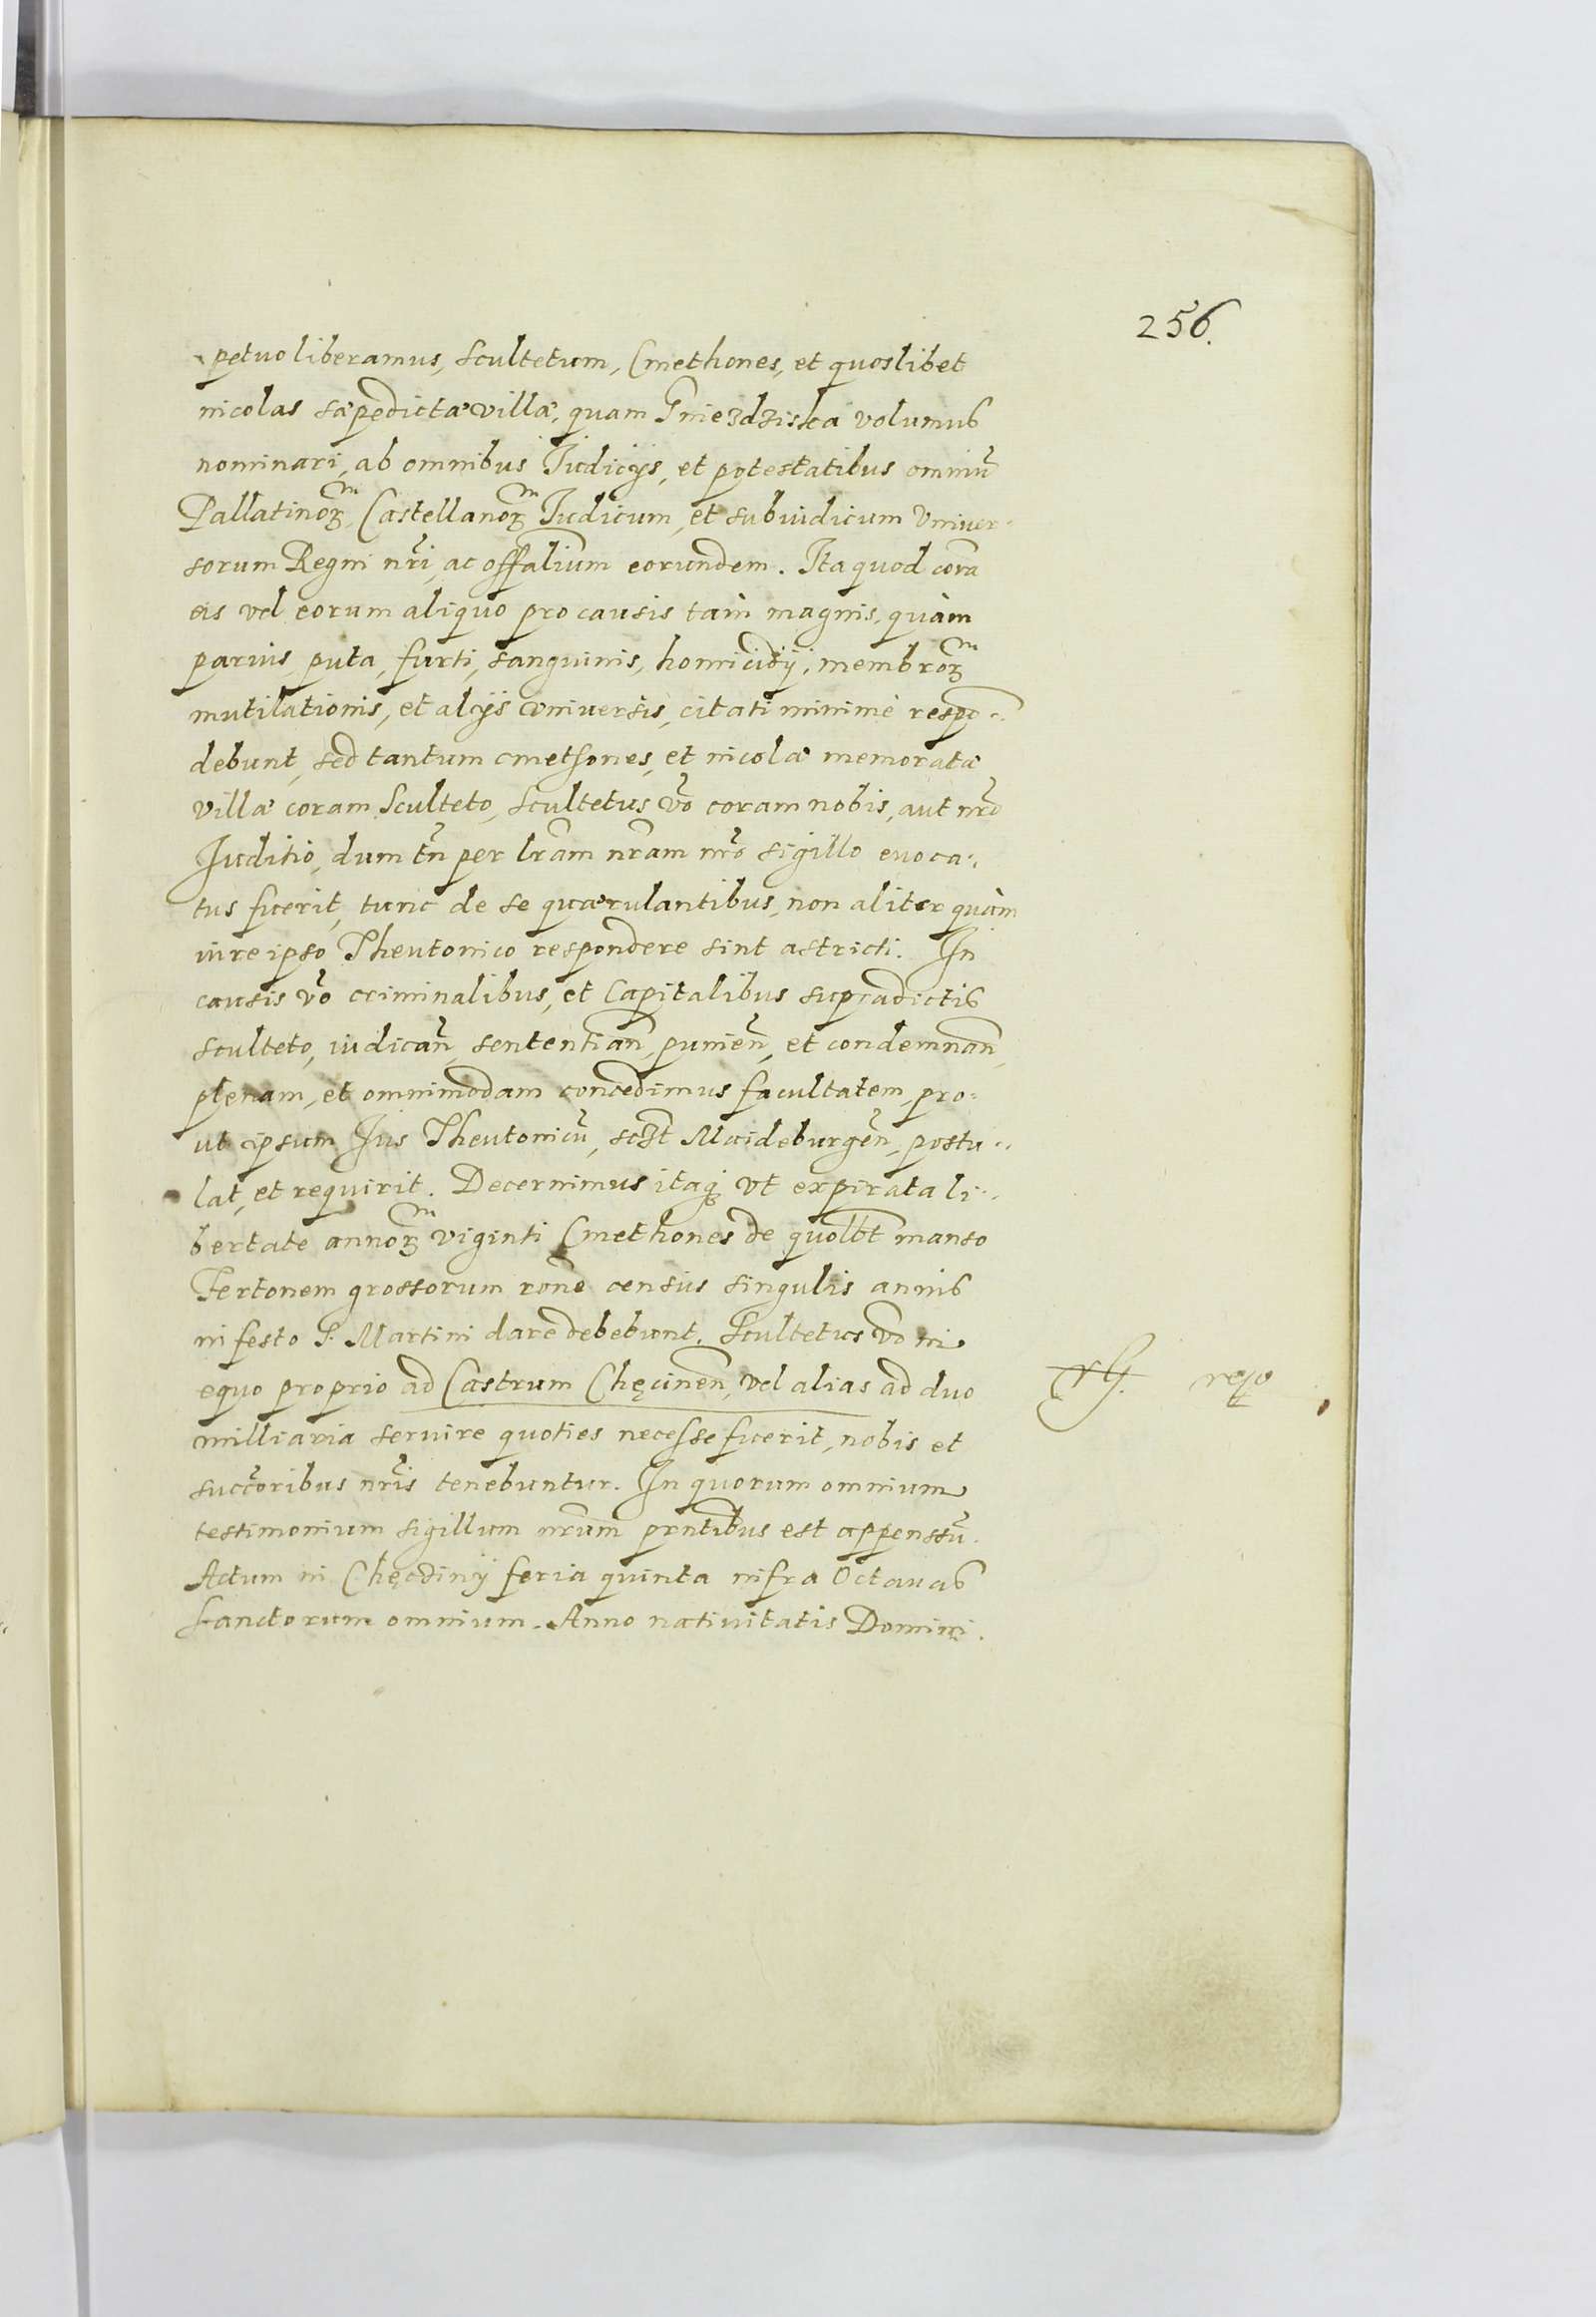 256.
petuo liberamus, scultetum, Cmethones, et quoslibet
incolas sæpedictæ villæ, quam Gniezdziska volumus
nominari, ab omnibus Iudicijs, et potestatibus omniũ
Pallatinoꝝ, Castellanoꝝ Iudicum, et subiudicum vniuer-
sorum Regni nr̃i, ac offalium eorundem. Ita quod corã
eis vel eorum aliquo pro causis tam magnis, quàm
paruis, puta, furti, sanguinis, homicidij, membroꝝ
mutilationis, et alijs vniuersis, citati minimè respõ-
debunt, sed tantum cmethones, et incolæ memoratæ
villæ coram Sculteto, scultetus ṽo coram nobis, aut nr̃o
Iuditio, dum tñ per lr̃am nr̃am nr̃o sigillo euoca-
tus fuerit, tunc de se quærulantibus, non aliter quàm
iure ipso Theutonico respondere sint astricti. In
causis ṽo criminalibus, et Capitalibus supradictis
sculteto, iudicañ, sententiañ, punieñ, et condemnañ,
plenam, et omnimodam concedimus facultatem, pro-
ut ipsum Ius Theutonicũ, sclt Maideburgeñ, postu-
lat, et requirit. Decernimus itaqꝫ vt expirata li-
bertate annoꝝ viginti Cmethones de quolbt manso
Fertonem grossorum rone census singulis annis
in festo S. Martini dare debebunt. Scultetus ṽo in
equo proprio ad Castrum Chęcineñ, vel alias ad duo
milliaria seruire quoties necesse fuerit, nobis et
succoribus nr̃is tenebuntur. In quorum omnium
testimonium sigillum nr̃um pr̃ntibus est appensũ.
Actum in Chęcdinÿ feria quinta infra Octauas
Sanctorum omnium. Anno natiuitatis Domini.